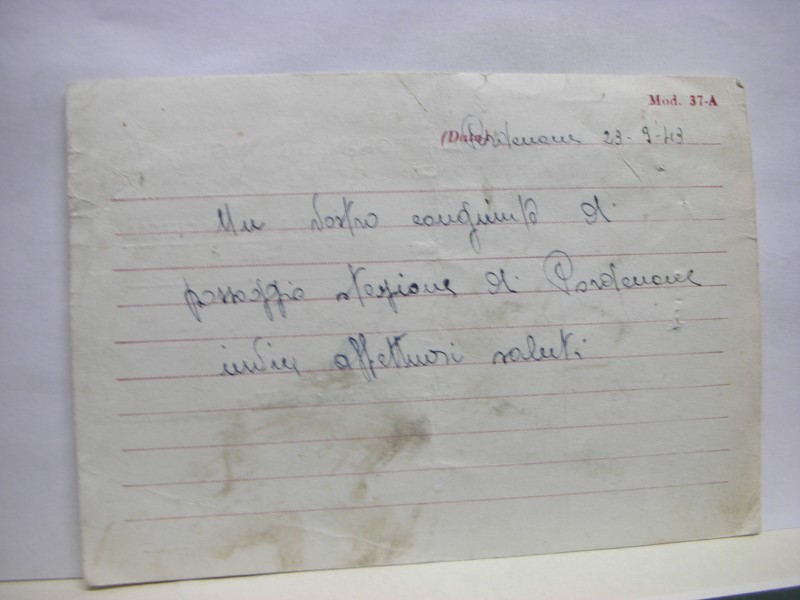 Mod. 37-A
(Data) Pordenone 23-9-43
Un vostro congiunto di
passaggio stazione di Pordenone
invia affettuosi saluti